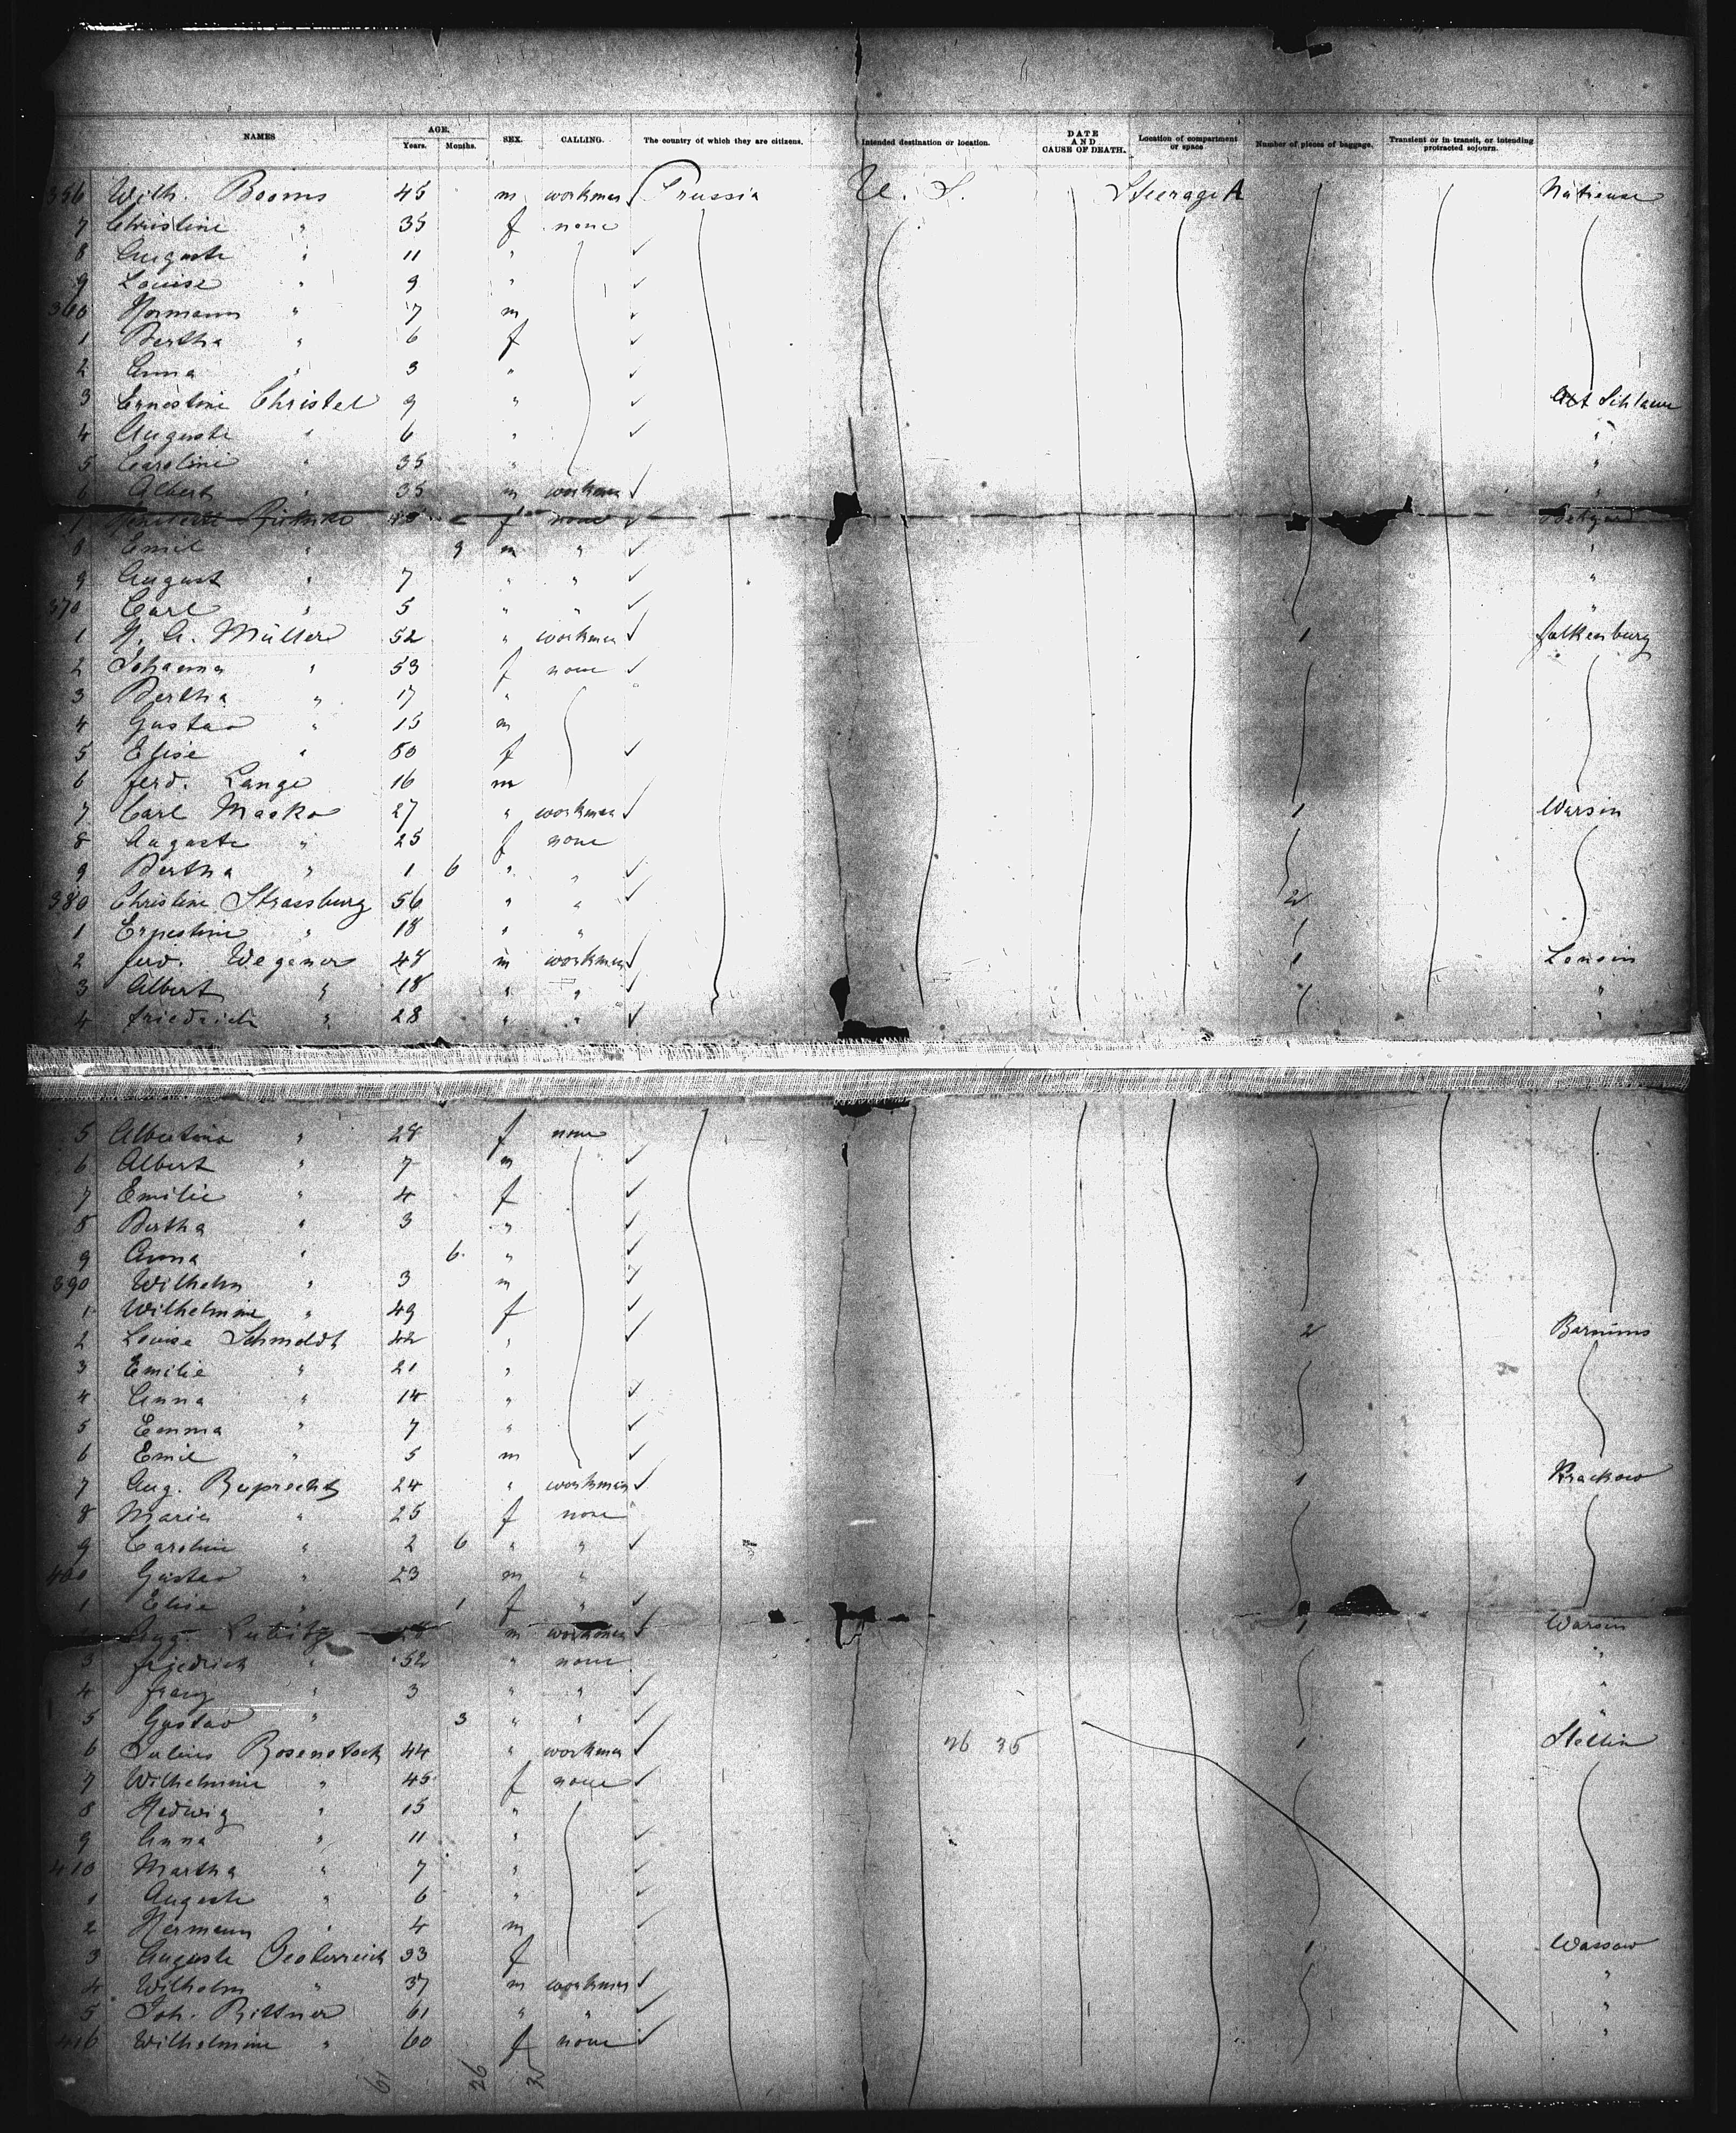 NAMES AGE. Years. Months. SEX. CALLING. The country of which they are citizens. Intended destination or location. DATE AND CAUSE OF DEATH. Location of compartment or space Number of pieces of baggage. Transient or in transit, or intending protracted sojourn.
356 Wilh. Booms 45 m workman Prussia U. S. Steerage A
7 Christine " 35 f none
8 Auguste " 11 "
9 Louise " 9 "
360 Hermann " 7 m
1 Bertha " 6 f
2 Anna " 3 "
3 Ernestine Christel 9 " Alt Schlawe
4 Auguste " 6 " "
5 Caroline " 35 " "
6 Albert " 35 m workman "
7 f none
8 Emil " 9 m " "
9 August " 7 " " "
370 Carl " 5 " " "
1 H. A. Müller 52 " workman 1 Falkenburg
2 Johanna " 53 f none
3 Bertha " 17 "
4 Gustav " 15 m
5 Elise " 50 f
6 Ferd. Lange 16 m
7 Carl Masko 27 " workman 1 Warsin
8 Auguste " 25 f none
9 Bertha " 1 6 " "
380 Christine Strassburg 56 " " 2
1 Ernestine " 18 " " 1
2 Ferd. Wegener 48 m workman 1 Lensin
3 Albert " 18 " " "
4 Friedrich " 28 " " "
5 Albertine " 28 f none
6 Albert " 7 m
7 Emilie " 4 f
8 Bertha " 3 "
9 Anna " 6 "
390 Wilhelm " 3 m
1 Wilhelmine " 49 f
2 Louise Schmeldt 42 " 2 Barnims
3 Emilie " 21 "
4 Anna " 14 "
5 Emma " 7 "
6 Emil " 5 m
7 Aug. Ruprecht 24 " workman 1 Krackow
8 Marie " 25 f none
9 Caroline " 2 6 " "
400 Gustav " 23 m "
1 Elise " 1 f "
2 Aug. Lubitz 28 m workman 1 Warsin
3 Friedrich " 52 " none "
4 Franz " 3 " " "
5 Gustav " 3 " " "
6 Julius Rosenstock 44 " workman 26 35 1 Stettin
7 Wilhelmine " 45 f none
8 Hedwig " 15 "
9 Anna " 11 "
410 Martha " 7 "
1 Auguste " 6 "
2 Hermann " 4 m
3 Auguste Oesterreich 33 f 1 Wassow
4 Wilhelm " 37 m workman "
5 Joh. Bittner 61 " " "
416 Wilhelmine " 60 f none "
61 26